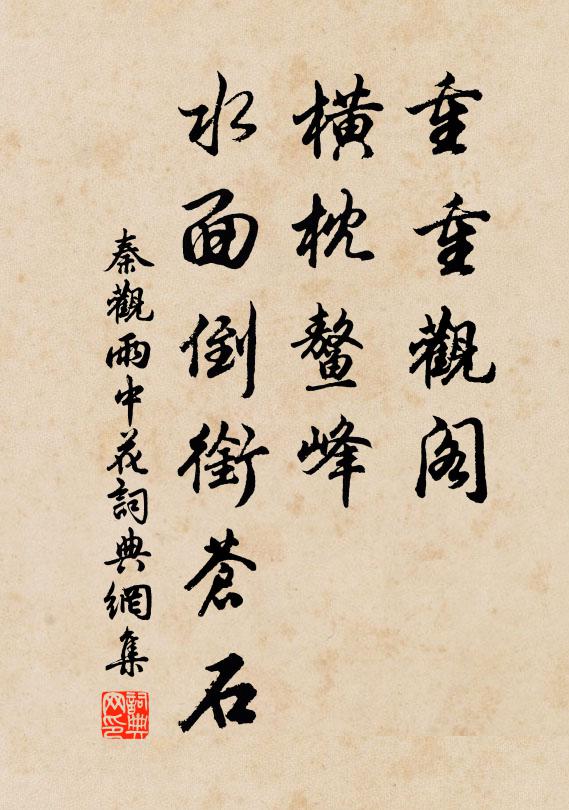 重重觀閣
橫枕鰲峰
水面倒銜蒼石
秦觀雨中花詞典網集
詞典網印